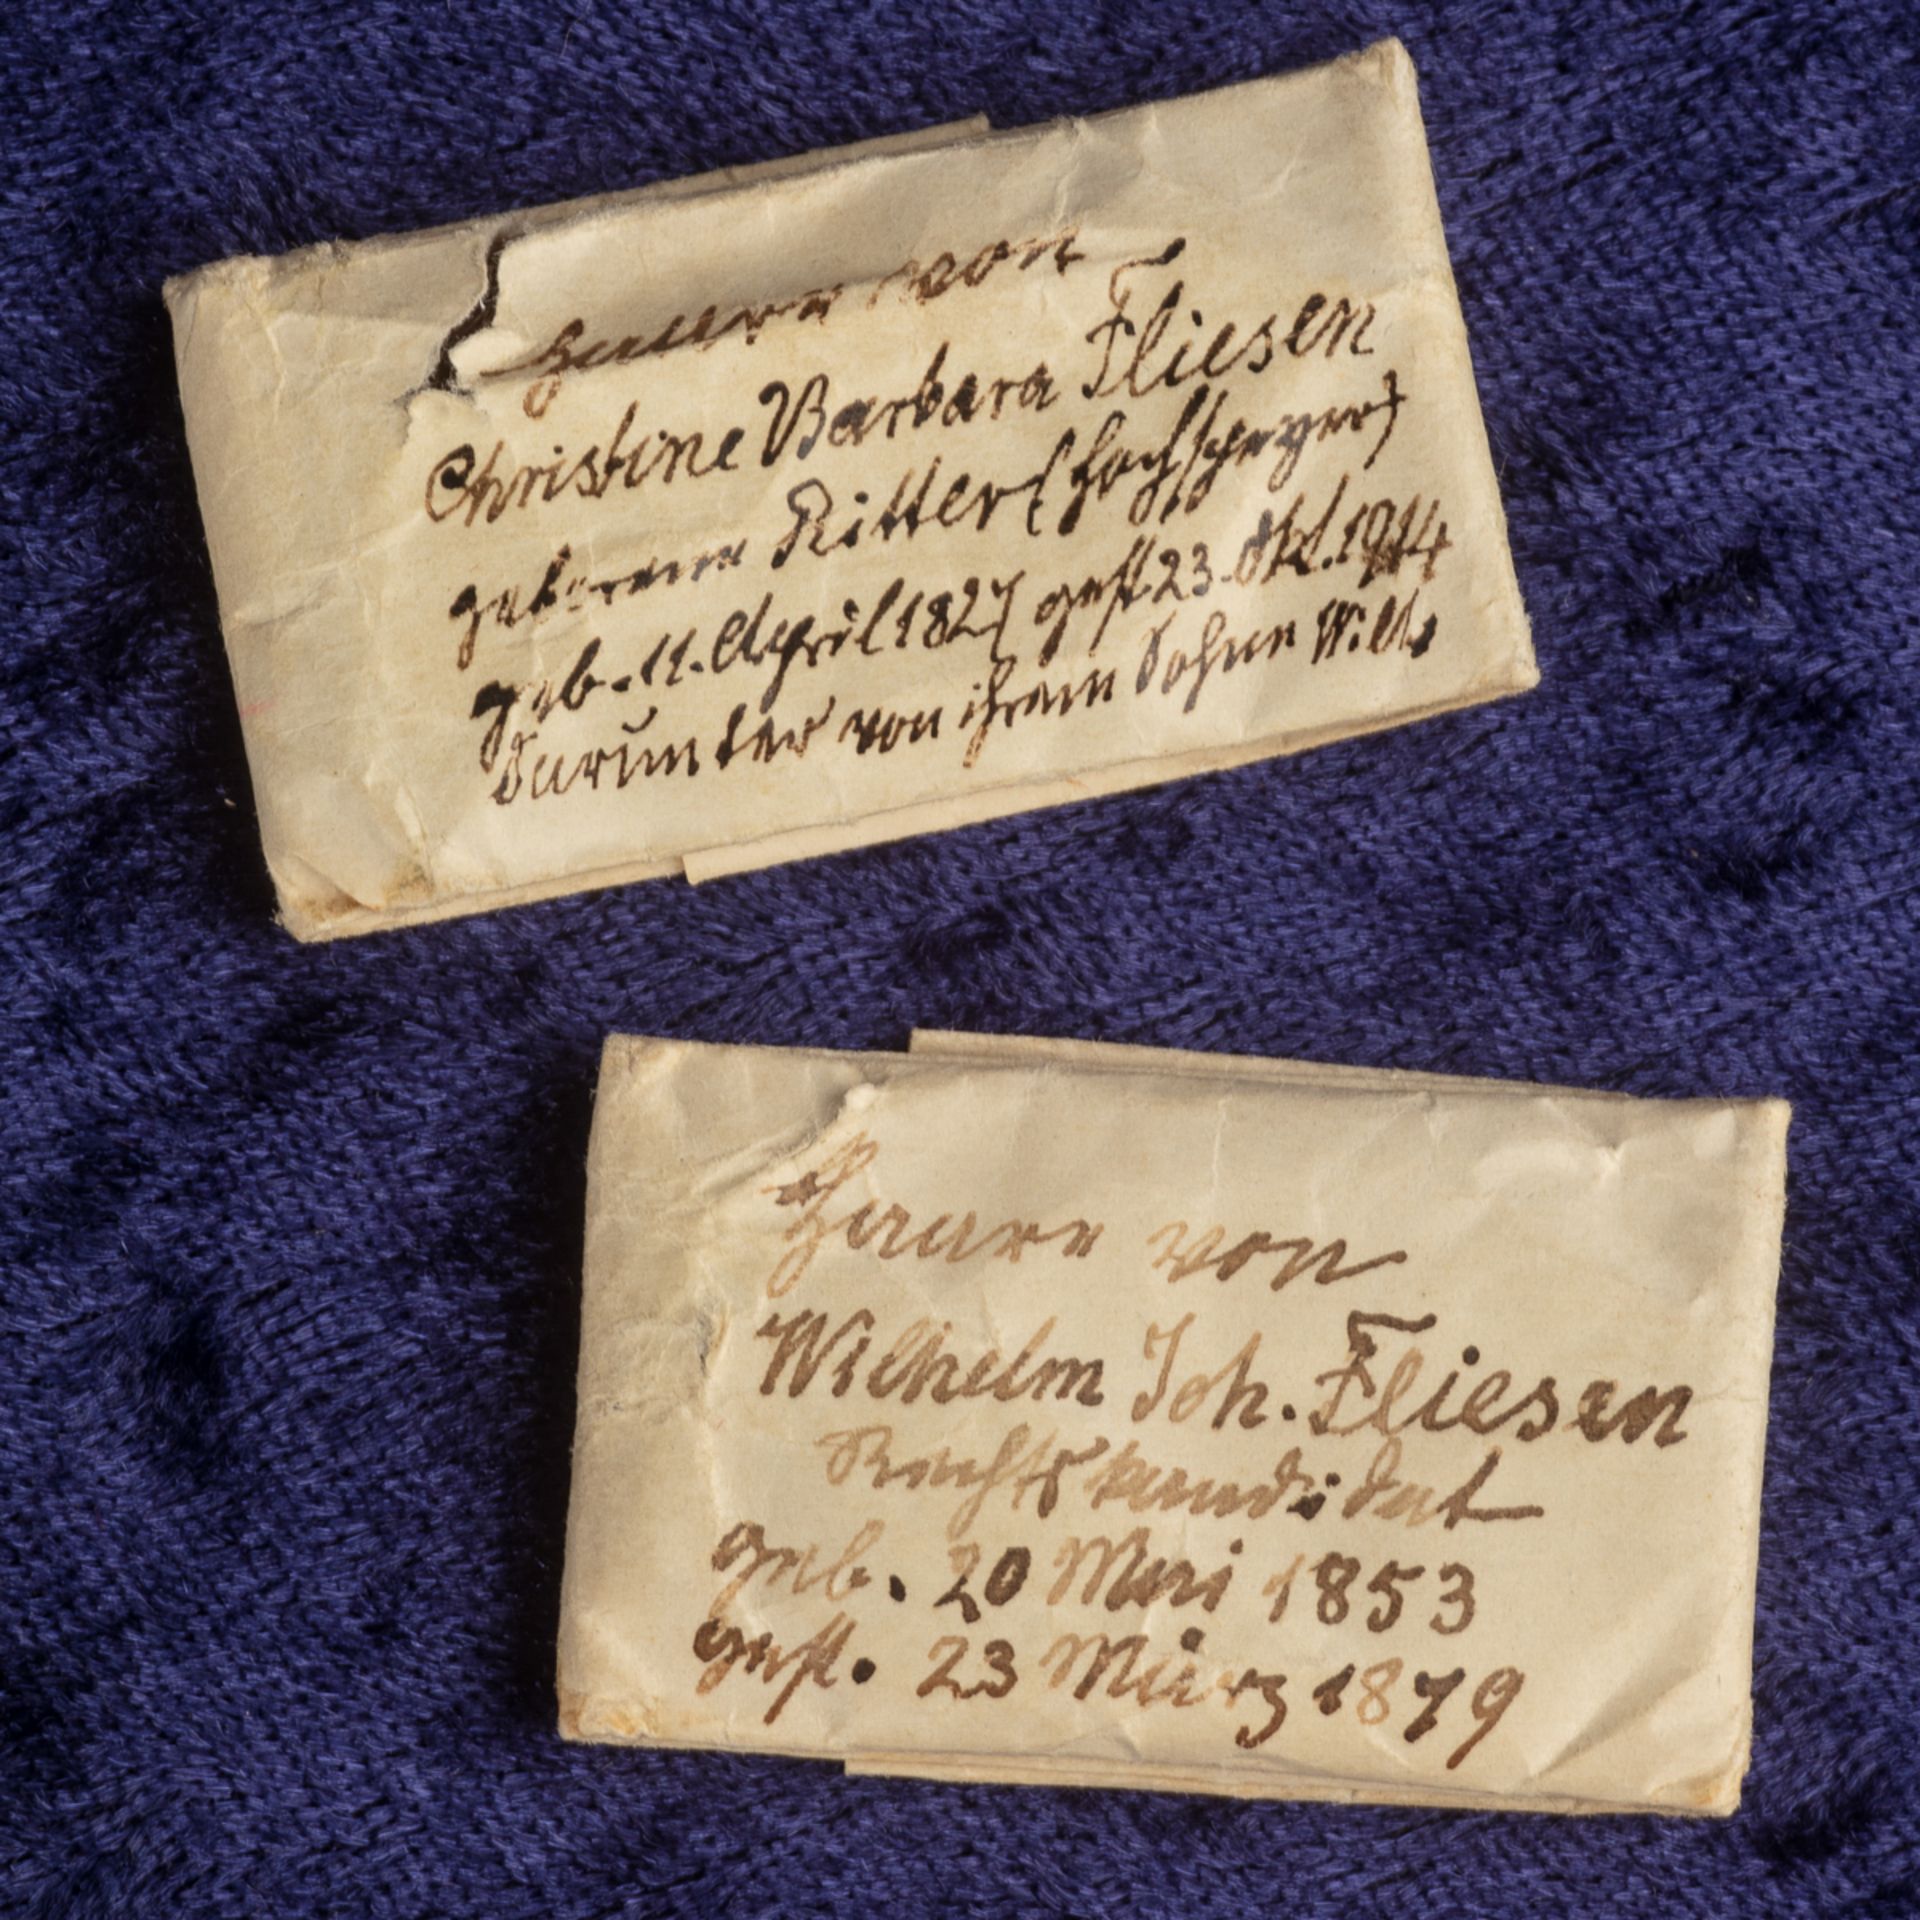 Haare von
Christine Barbara Fliesen
geborene Ritter (Hochspeyer)
geb. 11. April 1827 gest 23. Okt. 1914
Darunter von ihrem Sohne
Haare von
Wilhelm Joh. Fliesen
Rechtskandidat
geb. 20 Mai 1853
gest. 23 März 1879